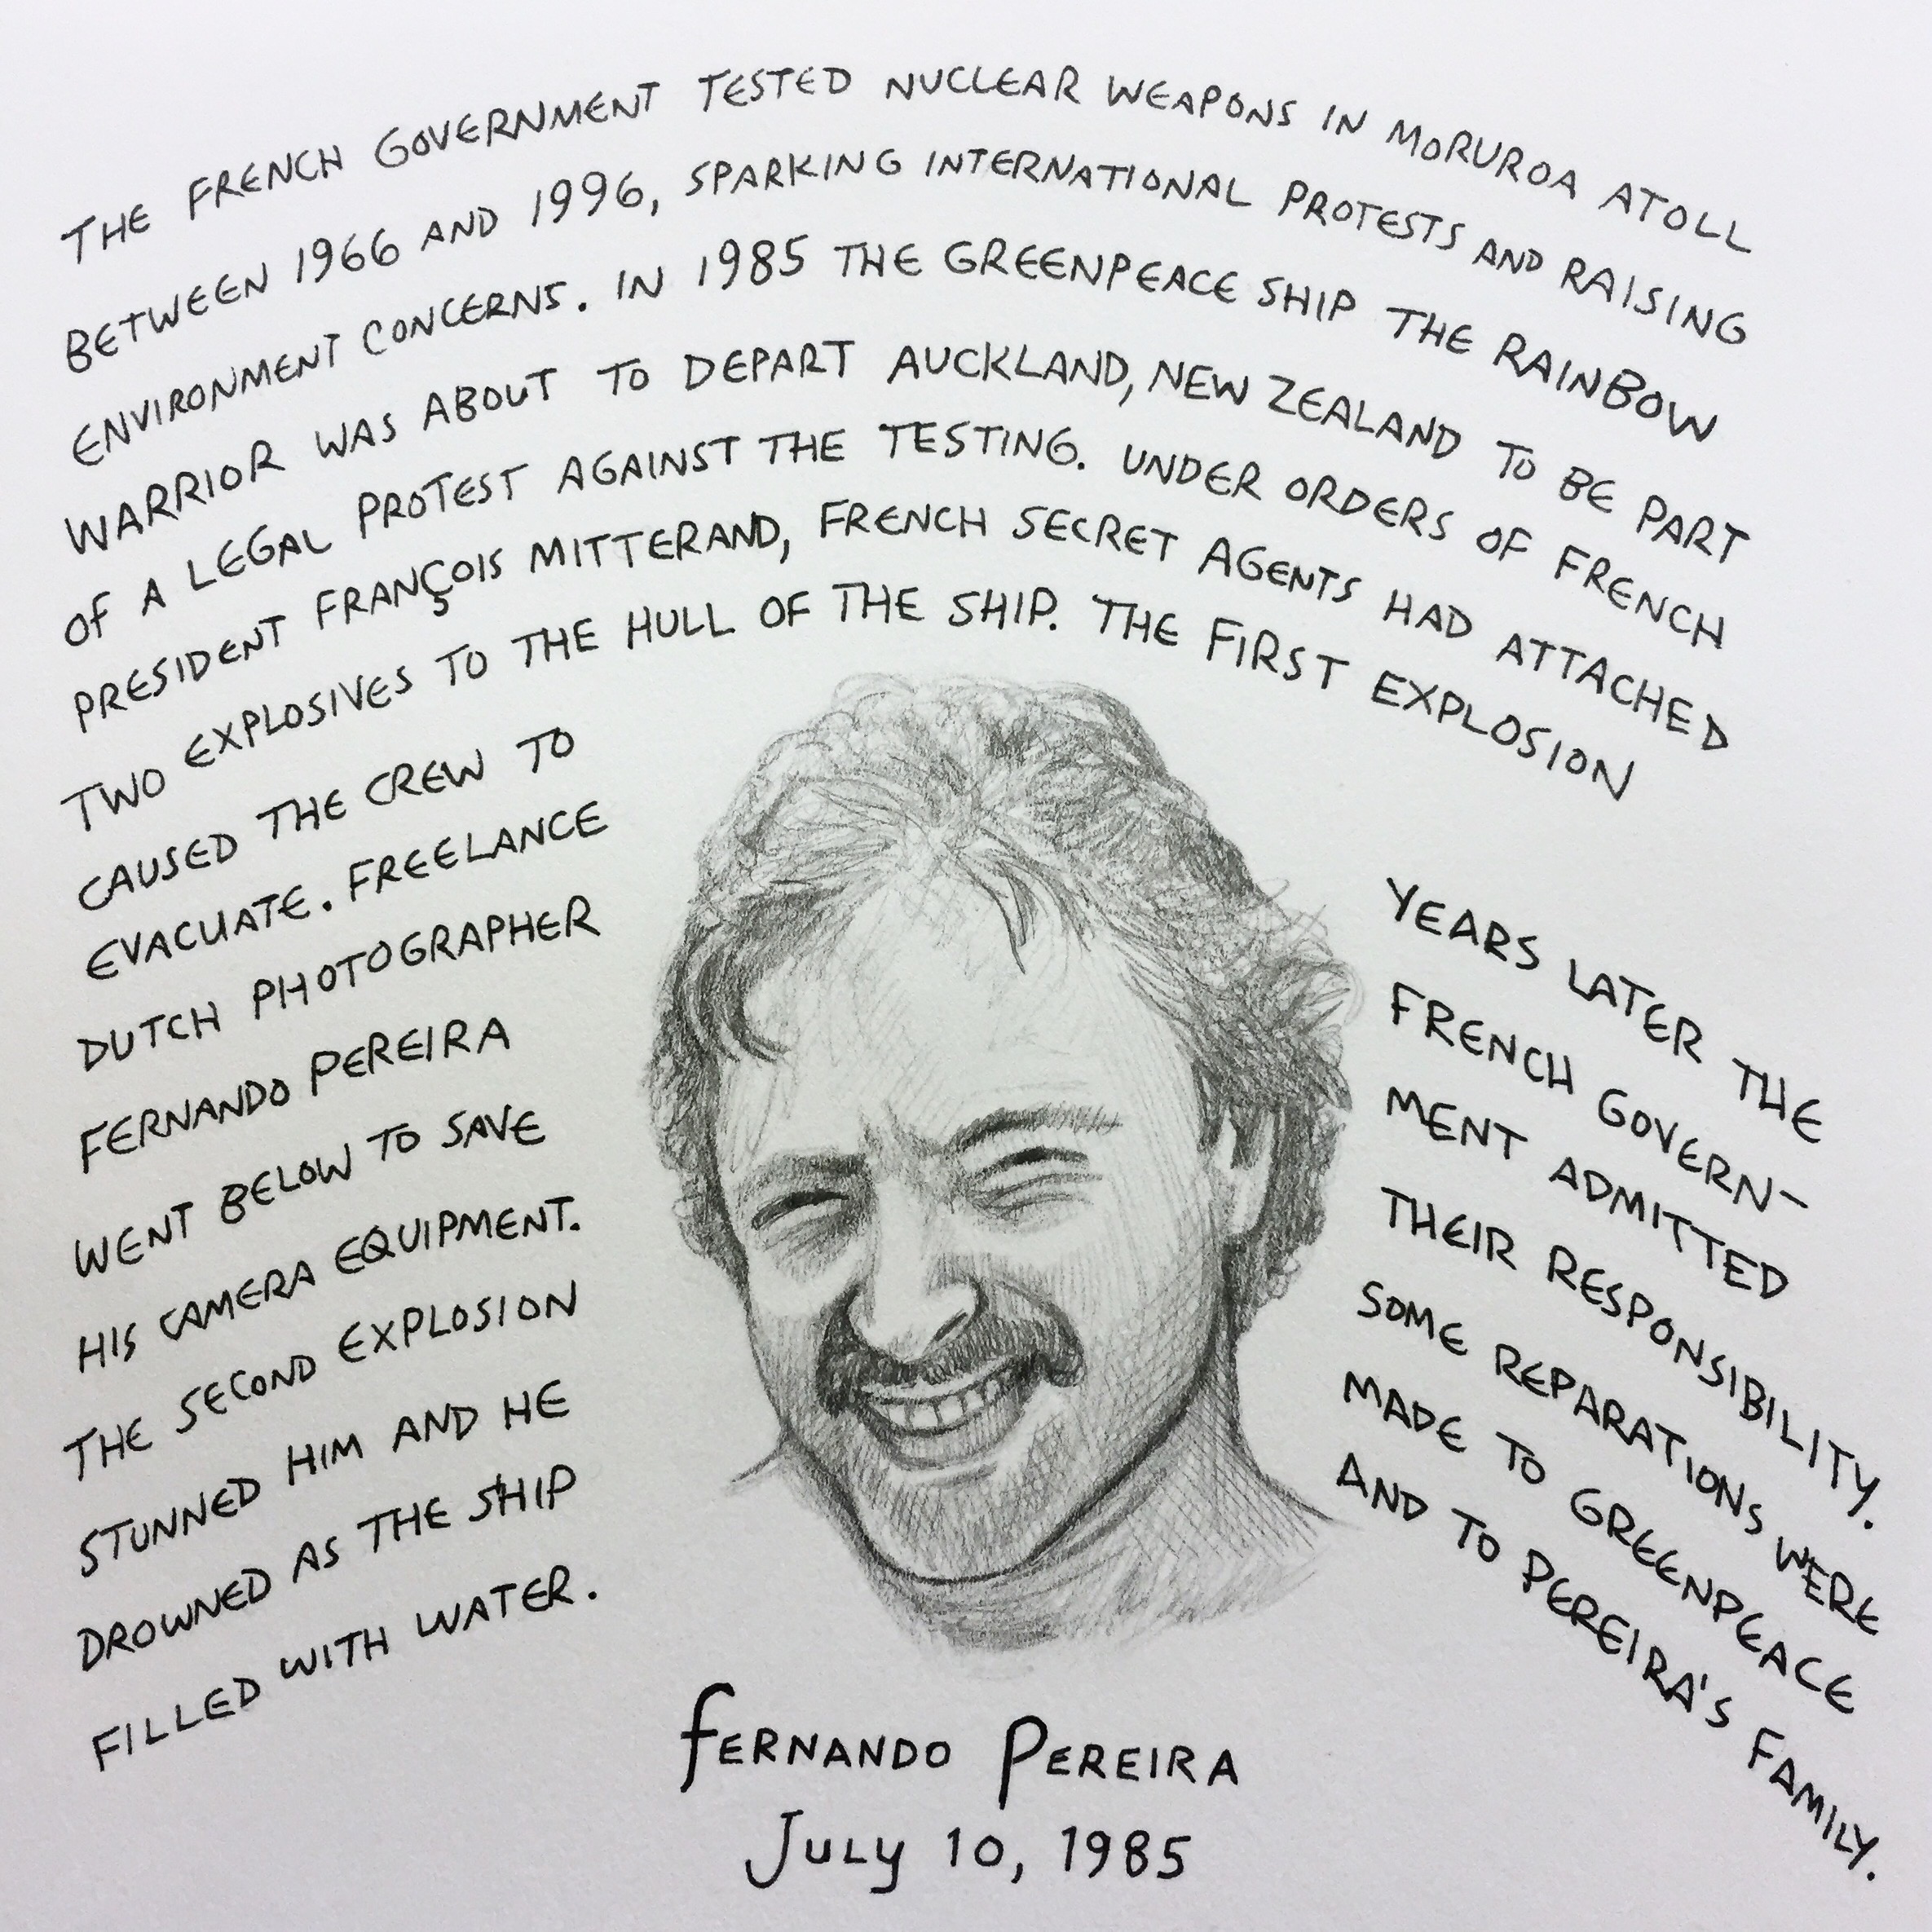 THE FRENCH GOVERNMENT TESTED NUCLEAR WEAPONS IN MORUROA ATOLL
BETWEEN 1966 AND 1996, SPARKING INTERNATIONAL PROTESTS AND RAISING
ENVIRONMENT CONCERNS. IN 1985 THE GREENPEACE SHIP THE RAINBOW
WARRIOR WAS ABOUT TO DEPART AUCKLAND, NEW ZEALAND TO BE PART
OF A LEGAL PROTEST AGAINST THE TESTING. UNDER ORDERS OF FRENCH
PRESIDENT FRANÇOIS MITTERAND, FRENCH SECRET AGENTS HAD ATTACHED
TWO EXPLOSIVES TO THE HULL OF THE SHIP. THE FIRST EXPLOSION
CAUSED THE CREW TO
EVACUATE. FREELANCE
DUTCH PHOTOGRAPHER
FERNANDO PEREIRA
WENT BELOW TO SAVE
HIS CAMERA EQUIPMENT.
THE SECOND EXPLOSION
STUNNED HIM AND HE
DROWNED AS THE SHIP
FILLED WITH WATER.
YEARS LATER THE
FRENCH GOVERN-
MENT ADMITTED
THEIR RESPONSIBILITY.
SOME REPARATIONS WERE
MADE TO GREENPEACE
AND TO PEREIRA'S FAMILY.
FERNANDO PEREIRA
JULY 10, 1985